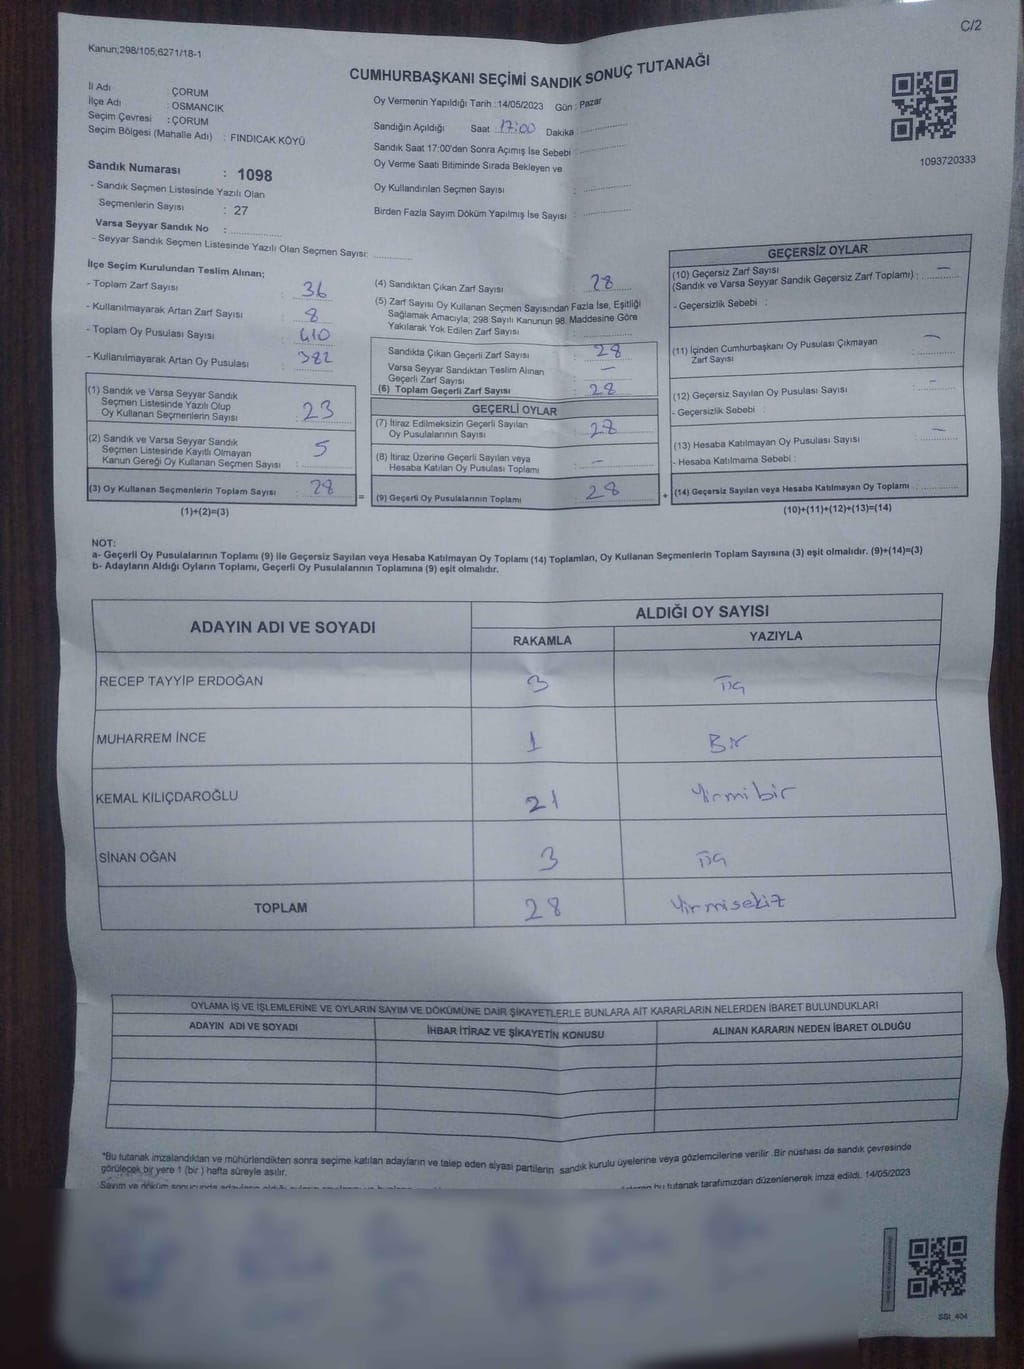 C/2
Kanun;298/105;6271/18-1
CUMHURBAŞKANI SEÇİMİ SANDIK SONUÇ TUTANAĞI
İl Adı : ÇORUM
İlçe Adı : OSMANCIK
Seçim Çevresi : ÇORUM
Seçim Bölgesi (Mahalle Adı) : FINDICAK KÖYÜ
Oy Vermenin Yapıldığı Tarih :14/05/2023 Gün : Pazar
Sandığın Açıldığı Saat : 17:00 Dakika :
Sandık Saat 17:00'den Sonra Açımış İse Sebebi :
Oy Verme Saati Bitiminde Sırada Bekleyen ve
Oy Kullandırılan Seçmen Sayısı :
Birden Fazla Sayım Döküm Yapılmış İse Sayısı :
1093720333
Sandık Numarası : 1098
- Sandık Seçmen Listesinde Yazılı Olan
Seçmenlerin Sayısı : 27
Varsa Seyyar Sandık No :
- Seyyar Sandık Seçmen Listesinde Yazılı Olan Seçmen Sayısı:
İlçe Seçim Kurulundan Teslim Alınan;
- Toplam Zarf Sayısı : 36
- Kullanılmayarak Artan Zarf Sayısı : 8
- Toplam Oy Pusulası Sayısı : 410
- Kullanılmayarak Artan Oy Pusulası : 382
(1) Sandık ve Varsa Seyyar Sandık
Seçmen Listesinde Yazılı Olup
Oy Kullanan Seçmenlerin Sayısı : 23
(2) Sandık ve Varsa Seyyar Sandık
Seçmen Listesinde Kayıtlı Olmayan
Kanun Gereği Oy Kullanan Seçmen Sayısı : 5
(3) Oy Kullanan Seçmenlerin Toplam Sayısı : 28
(1)+(2)=(3)
=
(4) Sandıktan Çıkan Zarf Sayısı : 28
(5) Zarf Sayısı Oy Kullanan Seçmen Sayısından Fazla İse, Eşitliği
Sağlamak Amacıyla, 298 Sayılı Kanunun 98. Maddesine Göre
Yakılarak Yok Edilen Zarf Sayısı :
Sandıkta Çıkan Geçerli Zarf Sayısı : 28
Varsa Seyyar Sandıktan Teslim Alınan
Geçerli Zarf Sayısı : -
(6) Toplam Geçerli Zarf Sayısı : 28
GEÇERLİ OYLAR
(7) İtiraz Edilmeksizin Geçerli Sayılan
Oy Pusulalarının Sayısı : 28
(8) İtiraz Üzerine Geçerli Sayılan veya
Hesaba Katılan Oy Pusulası Toplamı : -
(9) Geçerli Oy Pusulalarının Toplamı : 28
+
GEÇERSİZ OYLAR
(10) Geçersiz Zarf Sayısı
(Sandık ve Varsa Seyyar Sandık Geçersiz Zarf Toplamı) : -
- Geçersizlik Sebebi :
(11) İçinden Cumhurbaşkanı Oy Pusulası Çıkmayan
Zarf Sayısı : -
(12) Geçersiz Sayılan Oy Pusulası Sayısı : -
- Geçersizlik Sebebi :
(13) Hesaba Katılmayan Oy Pusulası Sayısı : -
- Hesaba Katılmama Sebebi :
(14) Geçersiz Sayılan veya Hesaba Katılmayan Oy Toplamı :
(10)+(11)+(12)+(13)=(14)
NOT:
a- Geçerli Oy Pusulalarının Toplamı (9) ile Geçersiz Sayılan veya Hesaba Katılmayan Oy Toplamı (14) Toplamları, Oy Kullanan Seçmenlerin Toplam Sayısına (3) eşit olmalıdır. (9)+(14)=(3)
b- Adayların Aldığı Oyların Toplamı, Geçerli Oy Pusulalarının Toplamına (9) eşit olmalıdır.
ADAYIN ADI VE SOYADI
ALDIĞI OY SAYISI
RAKAMLA YAZIYLA
RECEP TAYYİP ERDOĞAN 3 Üç
MUHARREM İNCE 1 Bir
KEMAL KILIÇDAROĞLU 21 Yirmibir
SİNAN OĞAN 3 Üç
TOPLAM 28 Yirmisekiz
OYLAMA İŞ VE İŞLEMLERİNE VE OYLARIN SAYIM VE DÖKÜMÜNE DAİR ŞİKAYETLERLE BUNLARA AİT KARARLARIN NELERDEN İBARET BULUNDUKLARI
ADAYIN ADI VE SOYADI İHBAR İTİRAZ VE ŞİKAYETİN KONUSU ALINAN KARARIN NEDEN İBARET OLDUĞU
"Bu tutanak imzalandıktan ve mühürlendikten sonra seçime katılan adayların ve talep eden siyasi partilerin sandık kurulu üyelerine veya gözlemcilerine verilir .Bir nüshası da sandık çevresinde
görülecek bir yere 1 (bir ) hafta süreyle asılır.
Sayım ve döküm sonucunda bu tutanak tarafımızdan düzenlenerek imza edildi. 14/05/2023
SSt_404